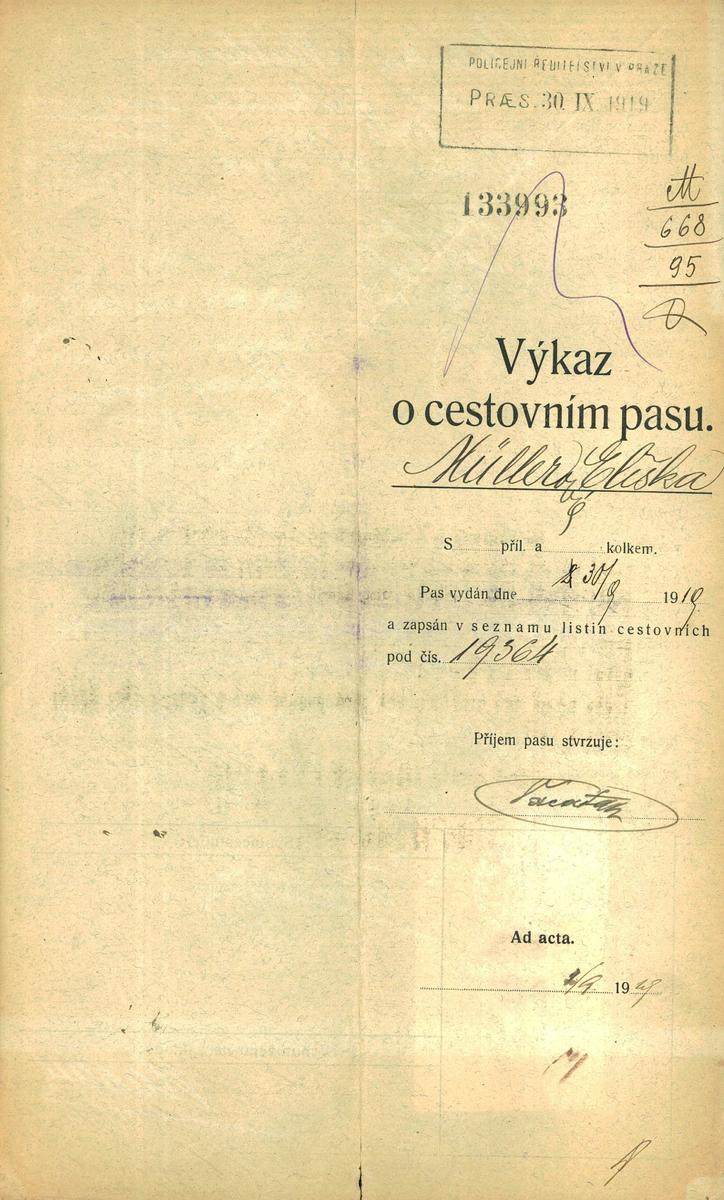 POLICEJNÍ ŘEDITELSTVÍ V PRAZE
PRÆS. 30. IX. 1919
133993
M
668
95
Výkaz
o cestovním pasu.
Müllerová Eliška
S příl. a kolkem.
Pas vydán dne 30/9 1919
a zapsán v seznamu listin cestovních
pod čís. 19364
Příjem pasu stvrzuje:
Ad acta.
1919